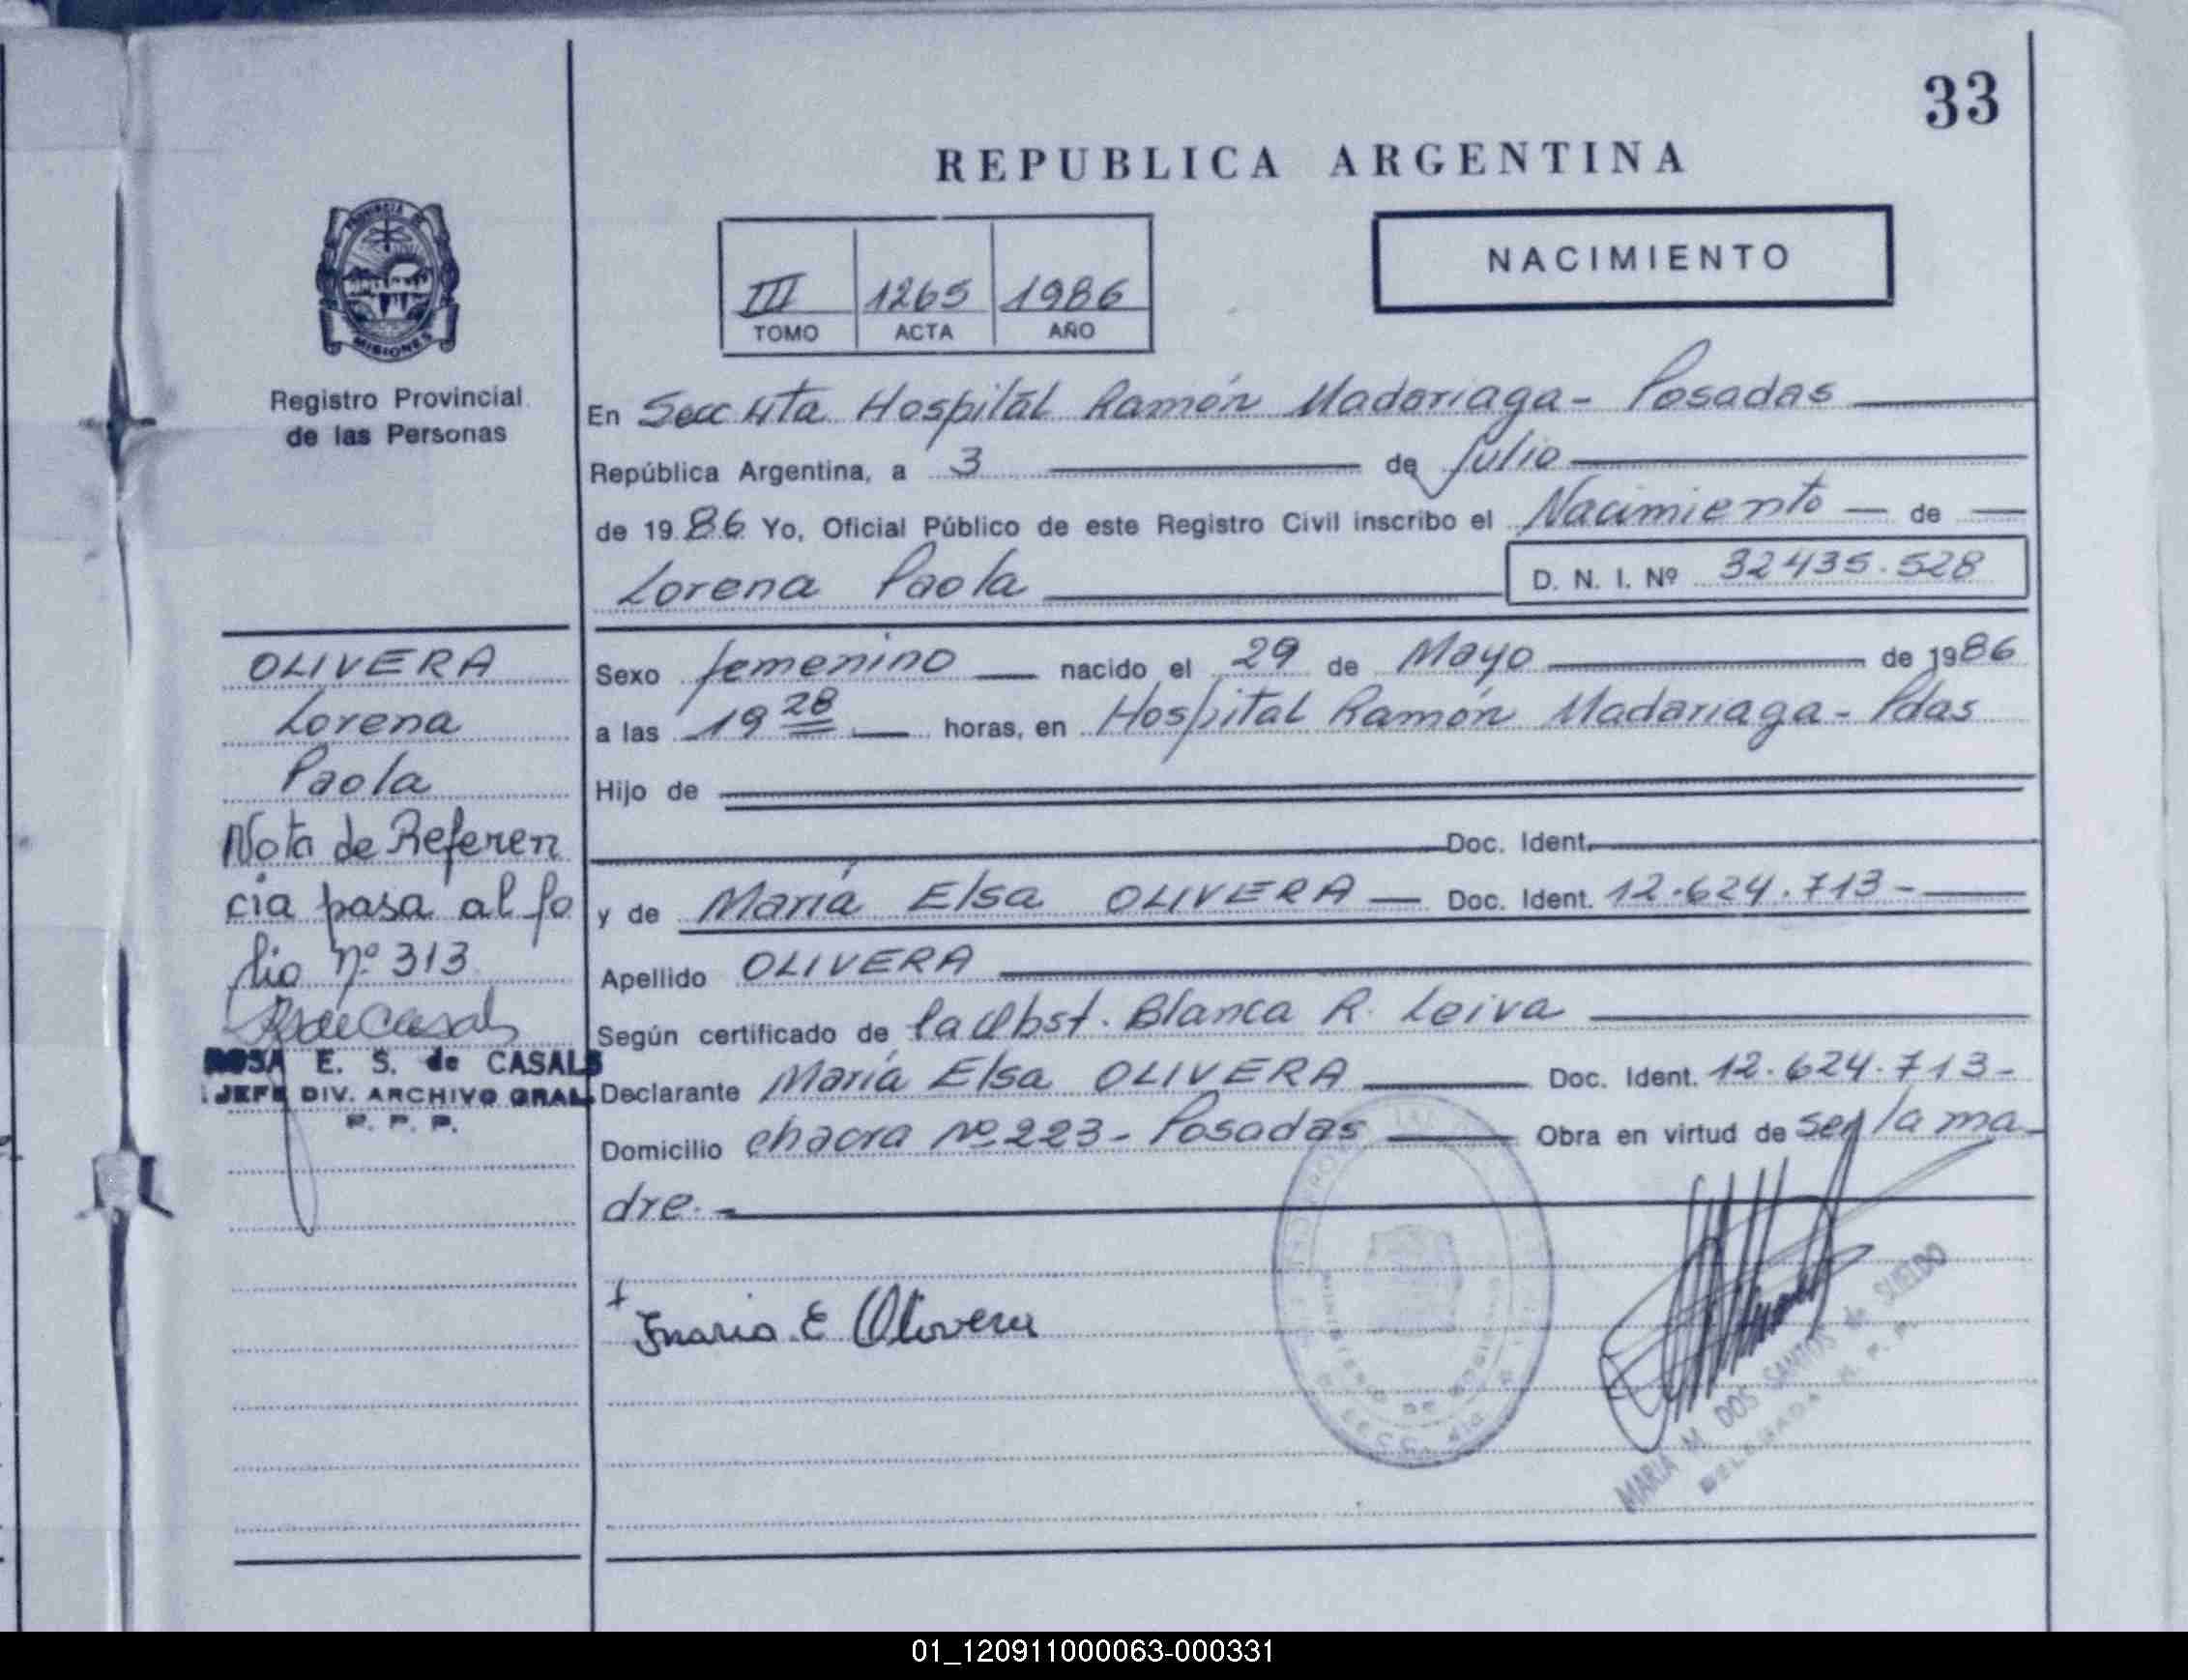 33
REPUBLICA ARGENTINA
NACIMIENTO
III 1265 1986
TOMO ACTA AÑO
PROVINCIA DE
MISIONES
Registro Provincial
de las Personas
En Secc 4ta Hospital Ramón Madariaga - Posadas
República Argentina, a 3 de Julio
de 1986 Yo, Oficial Público de este Registro Civil inscribo el Nacimiento de
Lorena Paola D. N. I. Nº 32435.528
OLIVERA
Lorena
Paola
Nota de Referen
cia pasa al fo
lio nº 313
ROSA E. S. de CASALS
JEFE DIV. ARCHIVO GRAL
R. P. P.
Sexo femenino nacido el 29 de Mayo de 1986
a las 19 28 horas, en Hospital Ramón Madariaga - Pdas
Hijo de
Doc. Ident.
y de María Elsa OLIVERA Doc. Ident. 12.624.713-
Apellido OLIVERA
Según certificado de la Obst. Blanca R. Leiva
Declarante María Elsa OLIVERA Doc. Ident. 12.624.713-
Domicilio chacra nº 223 - Posadas Obra en virtud de ser la ma
dre.-
Maria E Olivera
MINISTERIO DE GOBIERNO
MARIA M. DOS SANTOS de SUELDO
DELEGADA R. P. P.
01_120911000063-000331